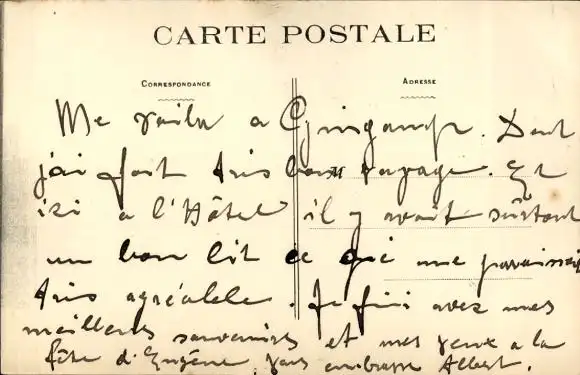 CARTE POSTALE
CORRESPONDANCE
ADRESSE
Me voila a Guingamp.
j'ai fait très bon voyage. Et
ici a l'Hôtel il y avait surtout
un bon lit ce qui me paraissait
très agréable. Je fini avec mes
meilleurs souvenirs et mes veux a la
fête d'Eugène vous embrasse Albert.